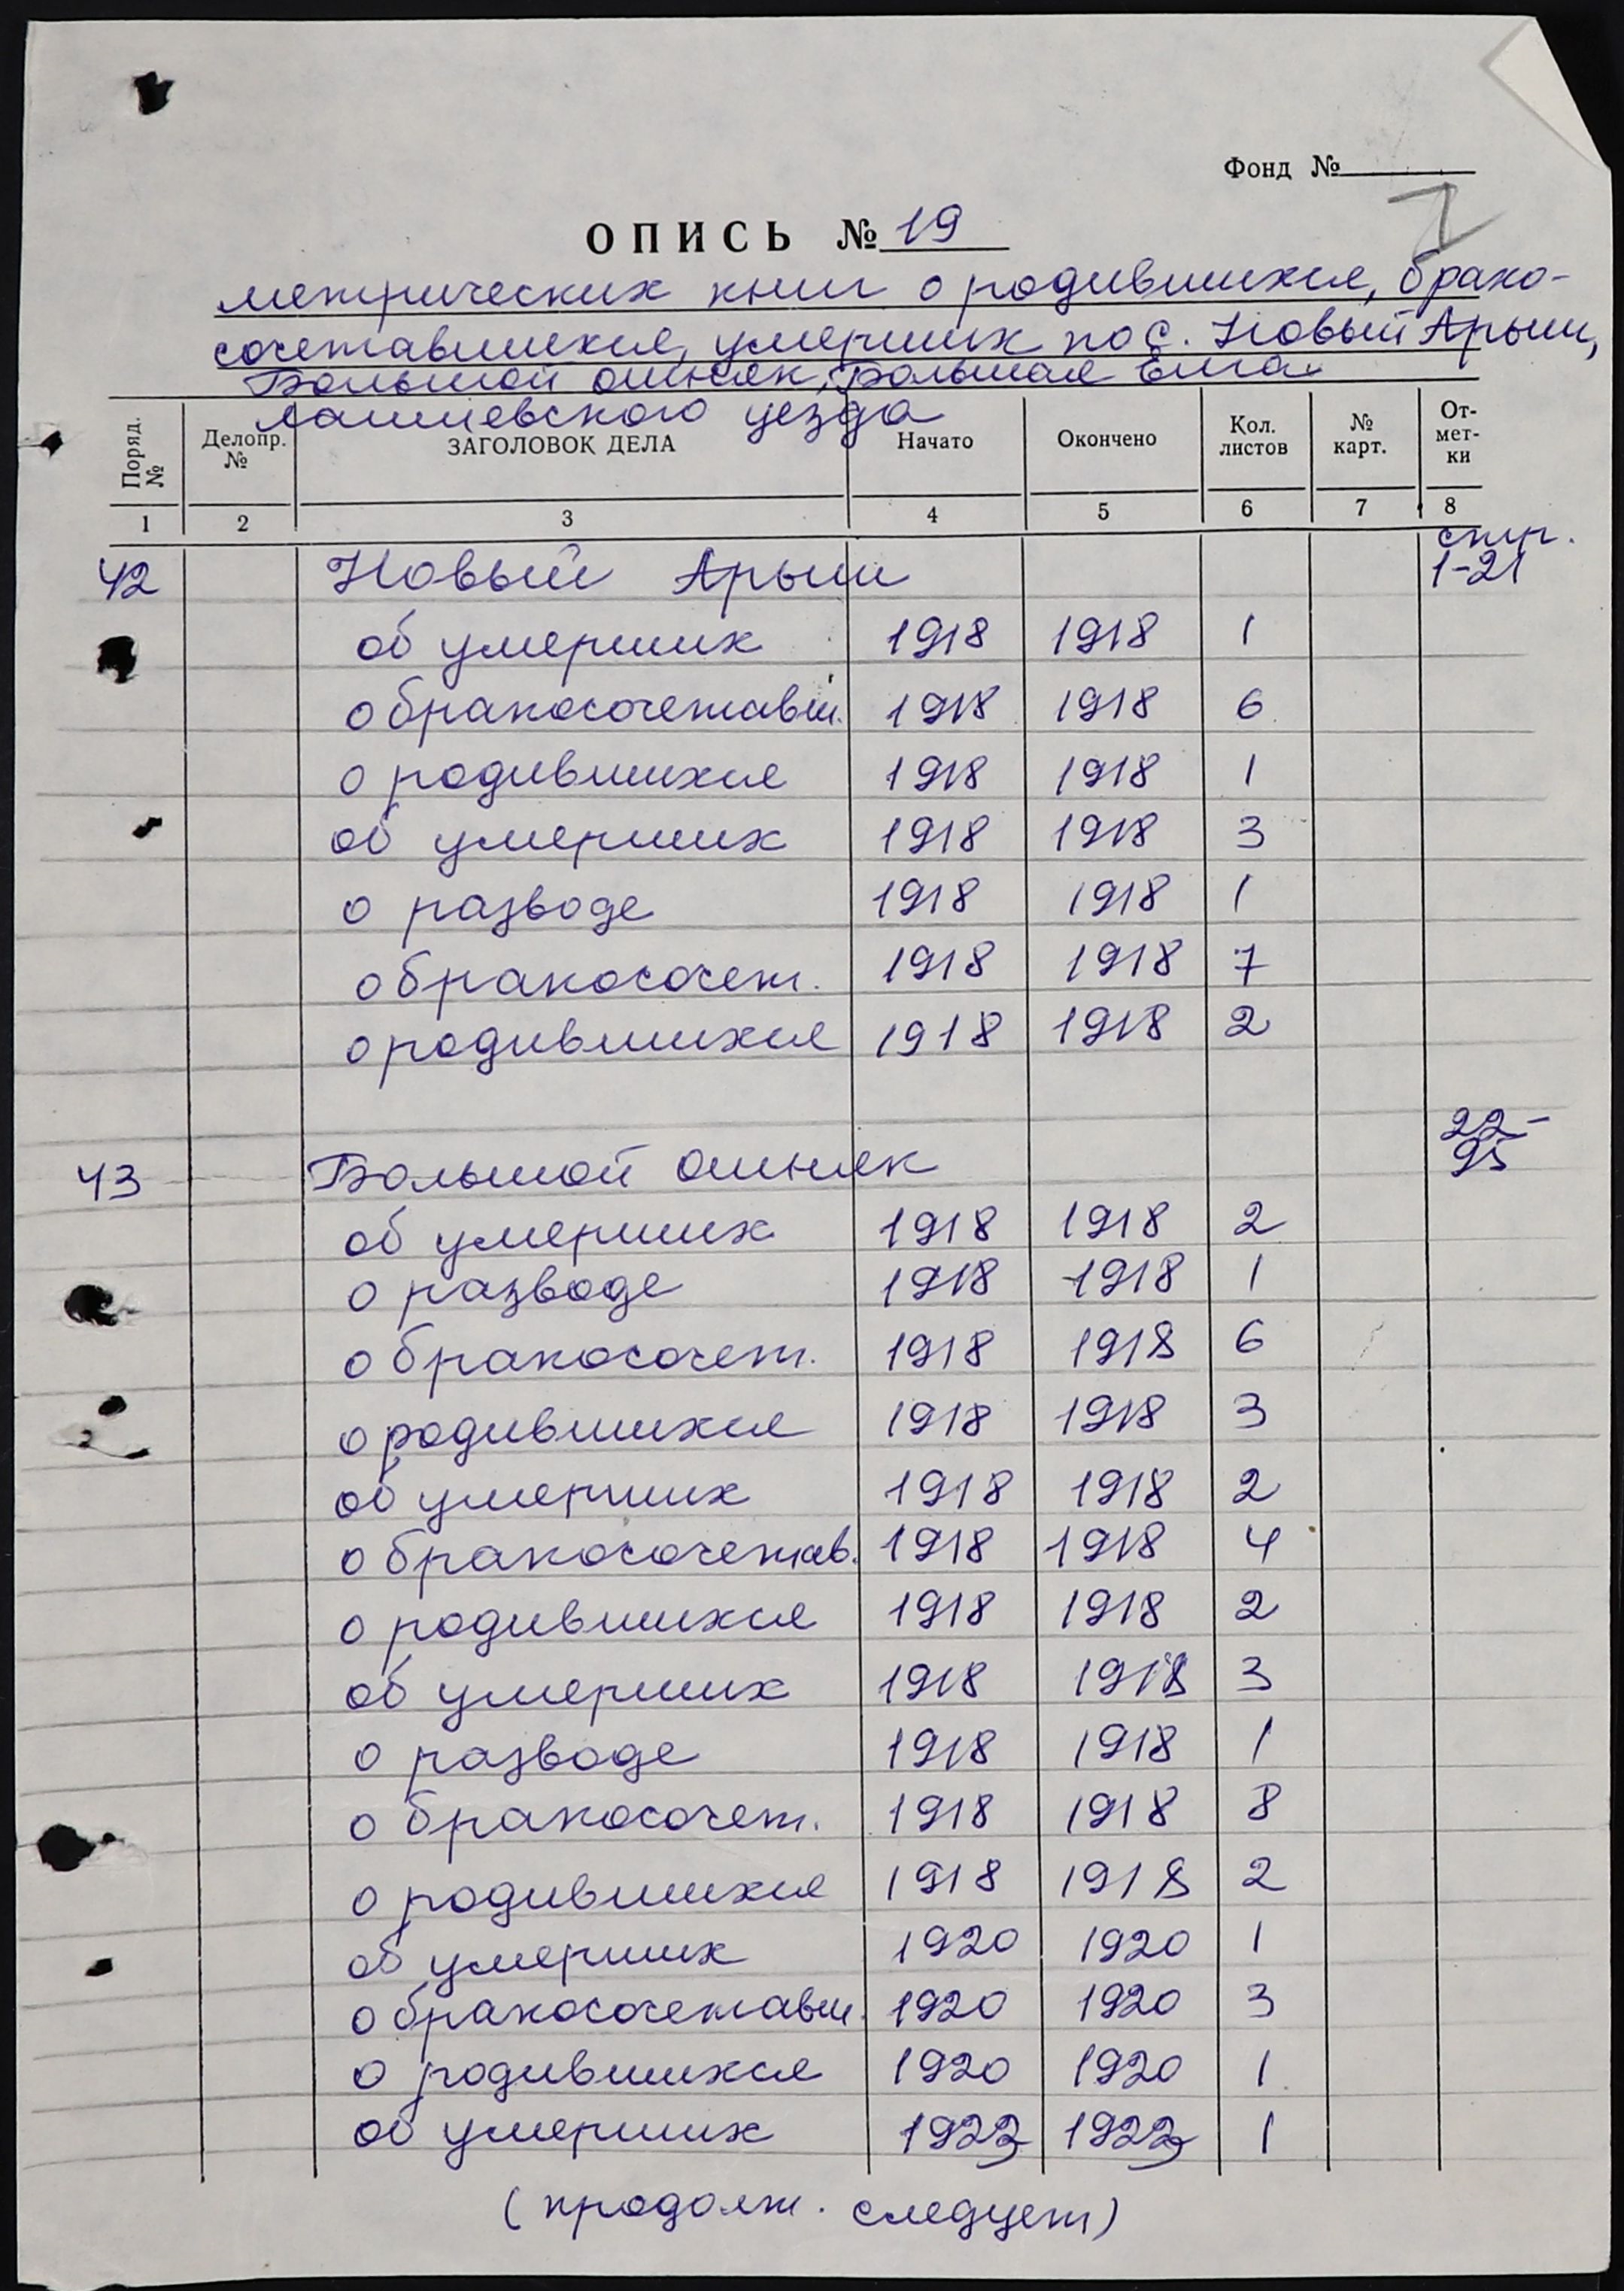 Фонд №
7
ОПИСЬ № 19
метрических книг о родившихся, брако-
сочетавшихся, умерших по с. Новый Арыш,
Большой Ошняк, Большая Елга
Лаишевского уезда
Поряд. № Делопр. № ЗАГОЛОВОК ДЕЛА Начато Окончено Кол. листов № карт. От-мет-ки
1 2 3 4 5 6 7 8
стр.
42 Новый Арыш 1-21
об умерших 1918 1918 1
о бракосочетавш. 1918 1918 6
о родившихся 1918 1918 1
об умерших 1918 1918 3
о разводе 1918 1918 1
о бракосочет. 1918 1918 7
о родившихся 1918 1918 2
22-
43 Большой Ошняк 95
об умерших 1918 1918 2
о разводе 1918 1918 1
о бракосочет. 1918 1918 6
о родившихся 1918 1918 3
об умерших 1918 1918 2
о бракосочетав. 1918 1918 4
о родившихся 1918 1918 2
об умерших 1918 1918 3
о разводе 1918 1918 1
о бракосочет. 1918 1918 8
о родившихся 1918 1918 2
об умерших 1920 1920 1
о бракосочетавш. 1920 1920 3
о родившихся 1920 1920 1
об умерших 1923 1923 1
(продолж. следует)